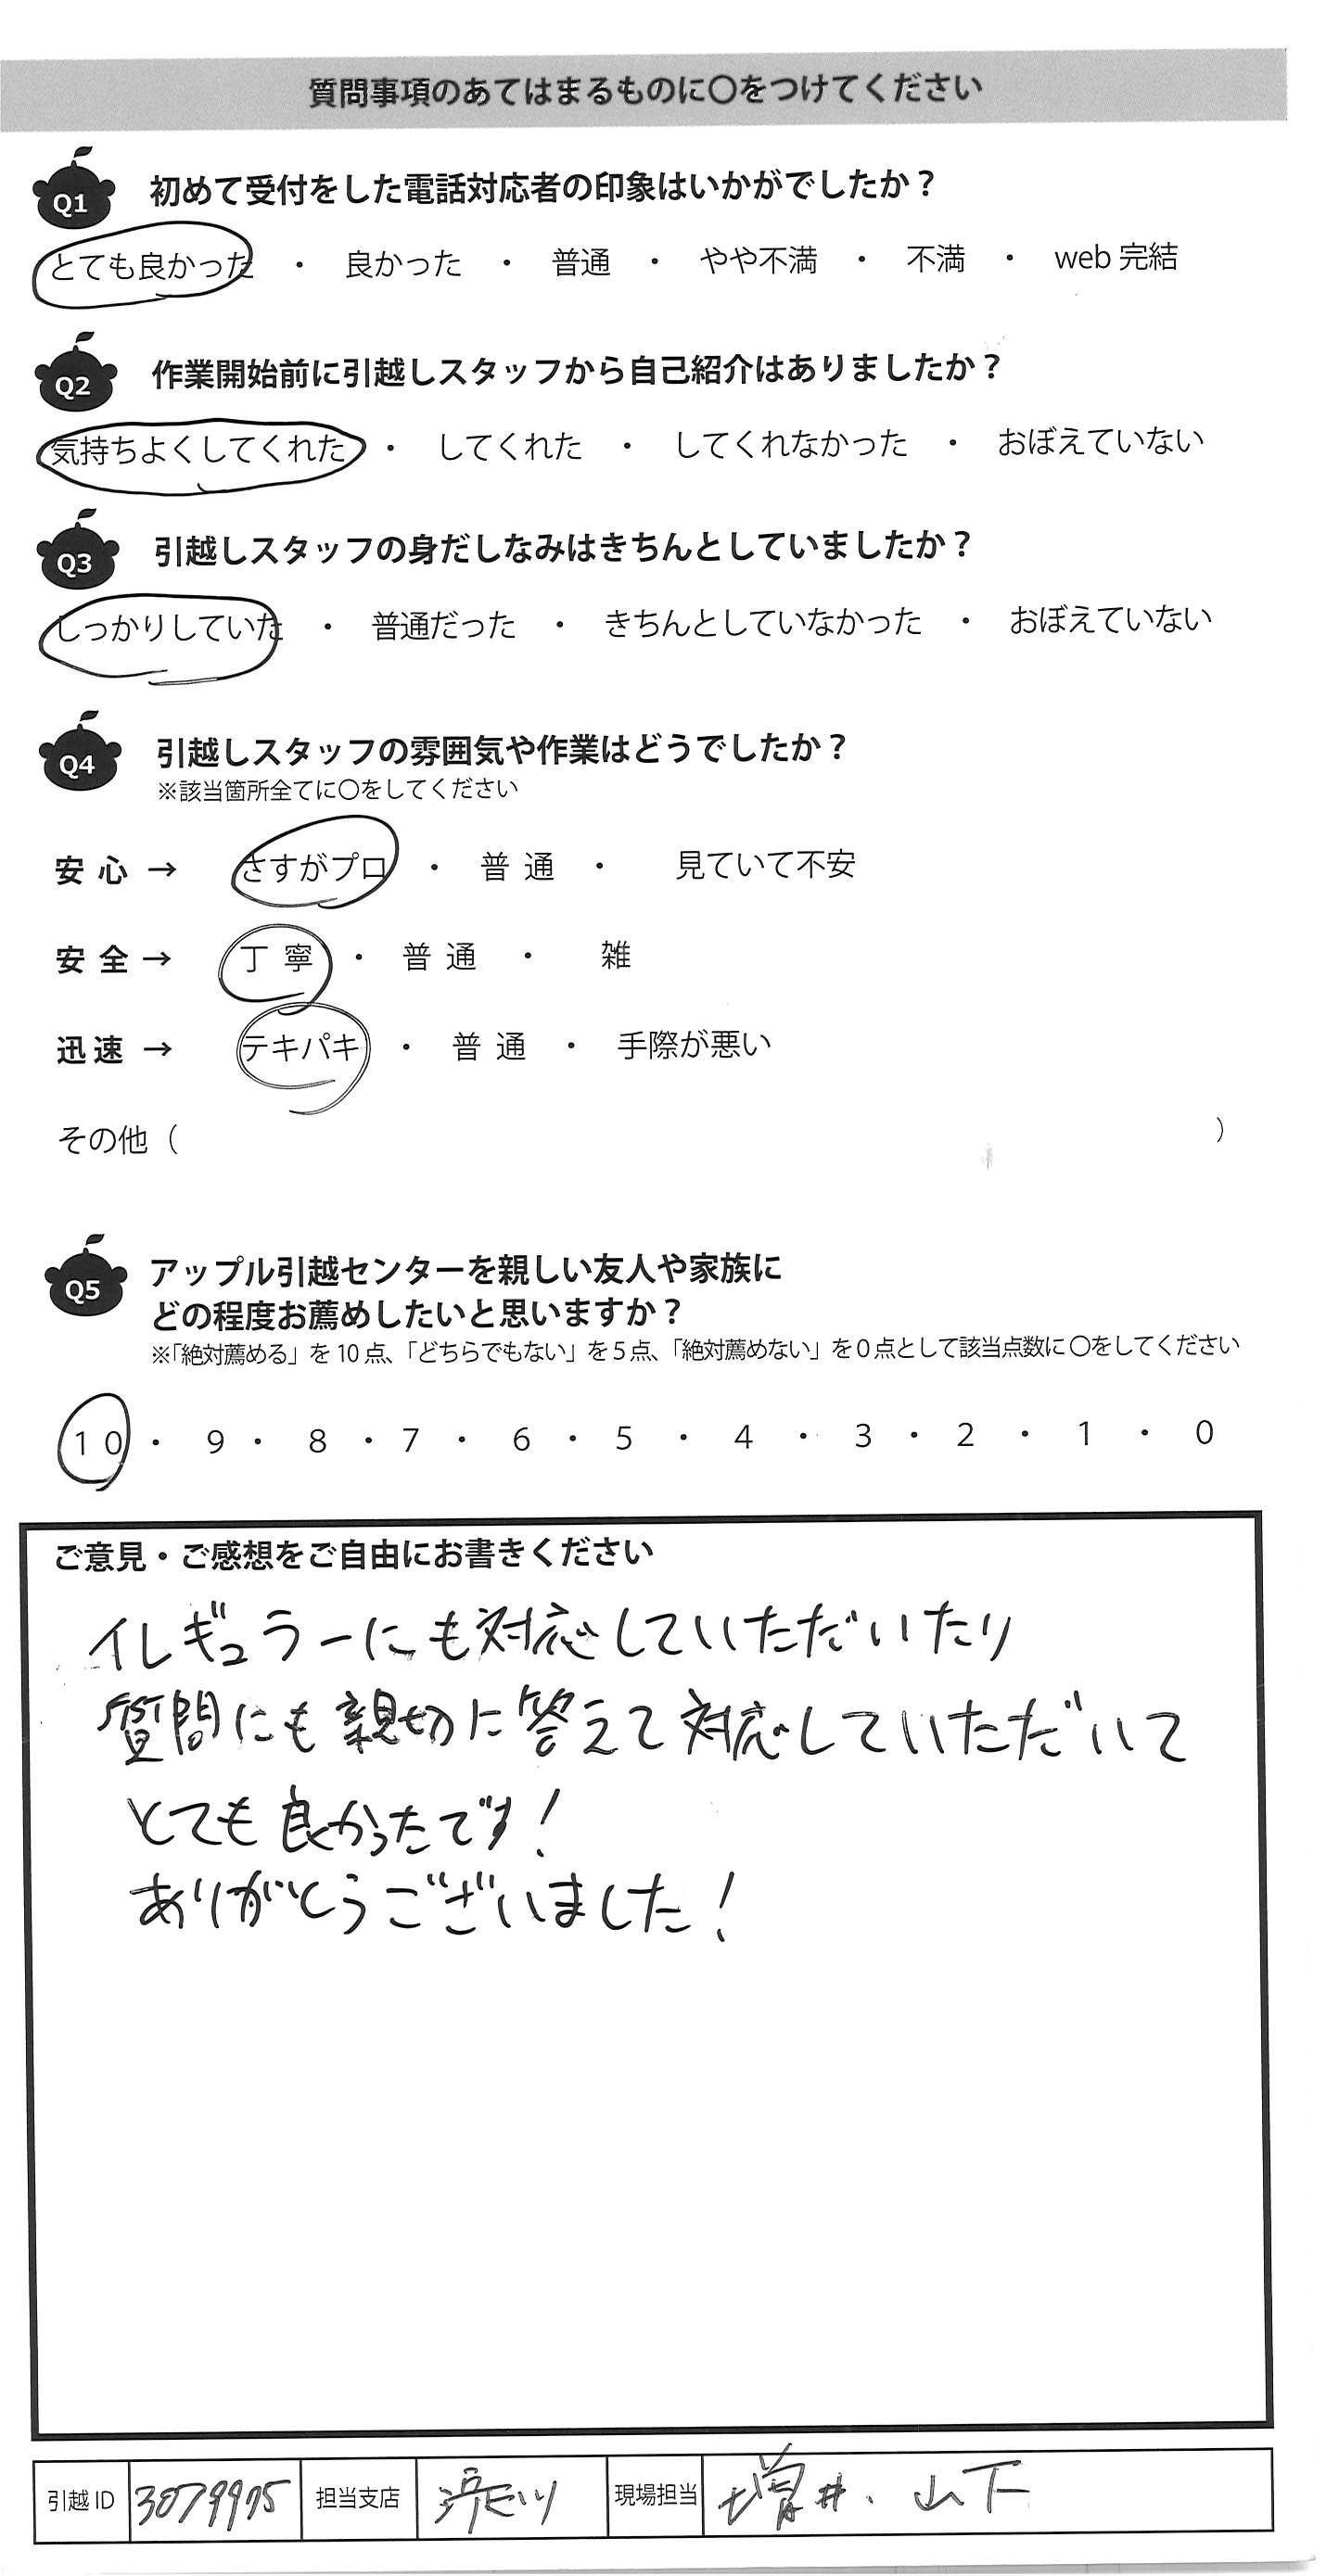 質問事項のあてはまるものに〇をつけてください
Q1 初めて受付をした電話対応者の印象はいかがでしたか？
とても良かった ・ 良かった ・ 普通 ・ やや不満 ・ 不満 ・ web 完結
Q2 作業開始前に引越しスタッフから自己紹介はありましたか？
気持ちよくしてくれた ・ してくれた ・ してくれなかった ・ おぼえていない
Q3 引越しスタッフの身だしなみはきちんとしていましたか？
しっかりしていた ・ 普通だった ・ きちんとしていなかった ・ おぼえていない
Q4 引越しスタッフの雰囲気や作業はどうでしたか？
※該当箇所全てに〇をしてください
安心 → さすがプロ ・ 普通 ・ 見ていて不安
安全 → 丁寧 ・ 普通 ・ 雑
迅速 → テキパキ ・ 普通 ・ 手際が悪い
その他（ ）
Q5 アップル引越センターを親しい友人や家族に
どの程度お薦めしたいと思いますか？
※「絶対薦める」を 10 点、「どちらでもない」を 5 点、「絶対薦めない」を 0 点として該当点数に 〇をしてください
10 ・ 9 ・ 8 ・ 7 ・ 6 ・ 5 ・ 4 ・ 3 ・ 2 ・ 1 ・ 0
ご意見・ご感想をご自由にお書きください
イレギュラーにも対応していただいたり
質問にも親切に答えて対応していただいて
とても良かったです！
ありがとうございました！
引越 ID 担当支店 現場担当 増井、山下